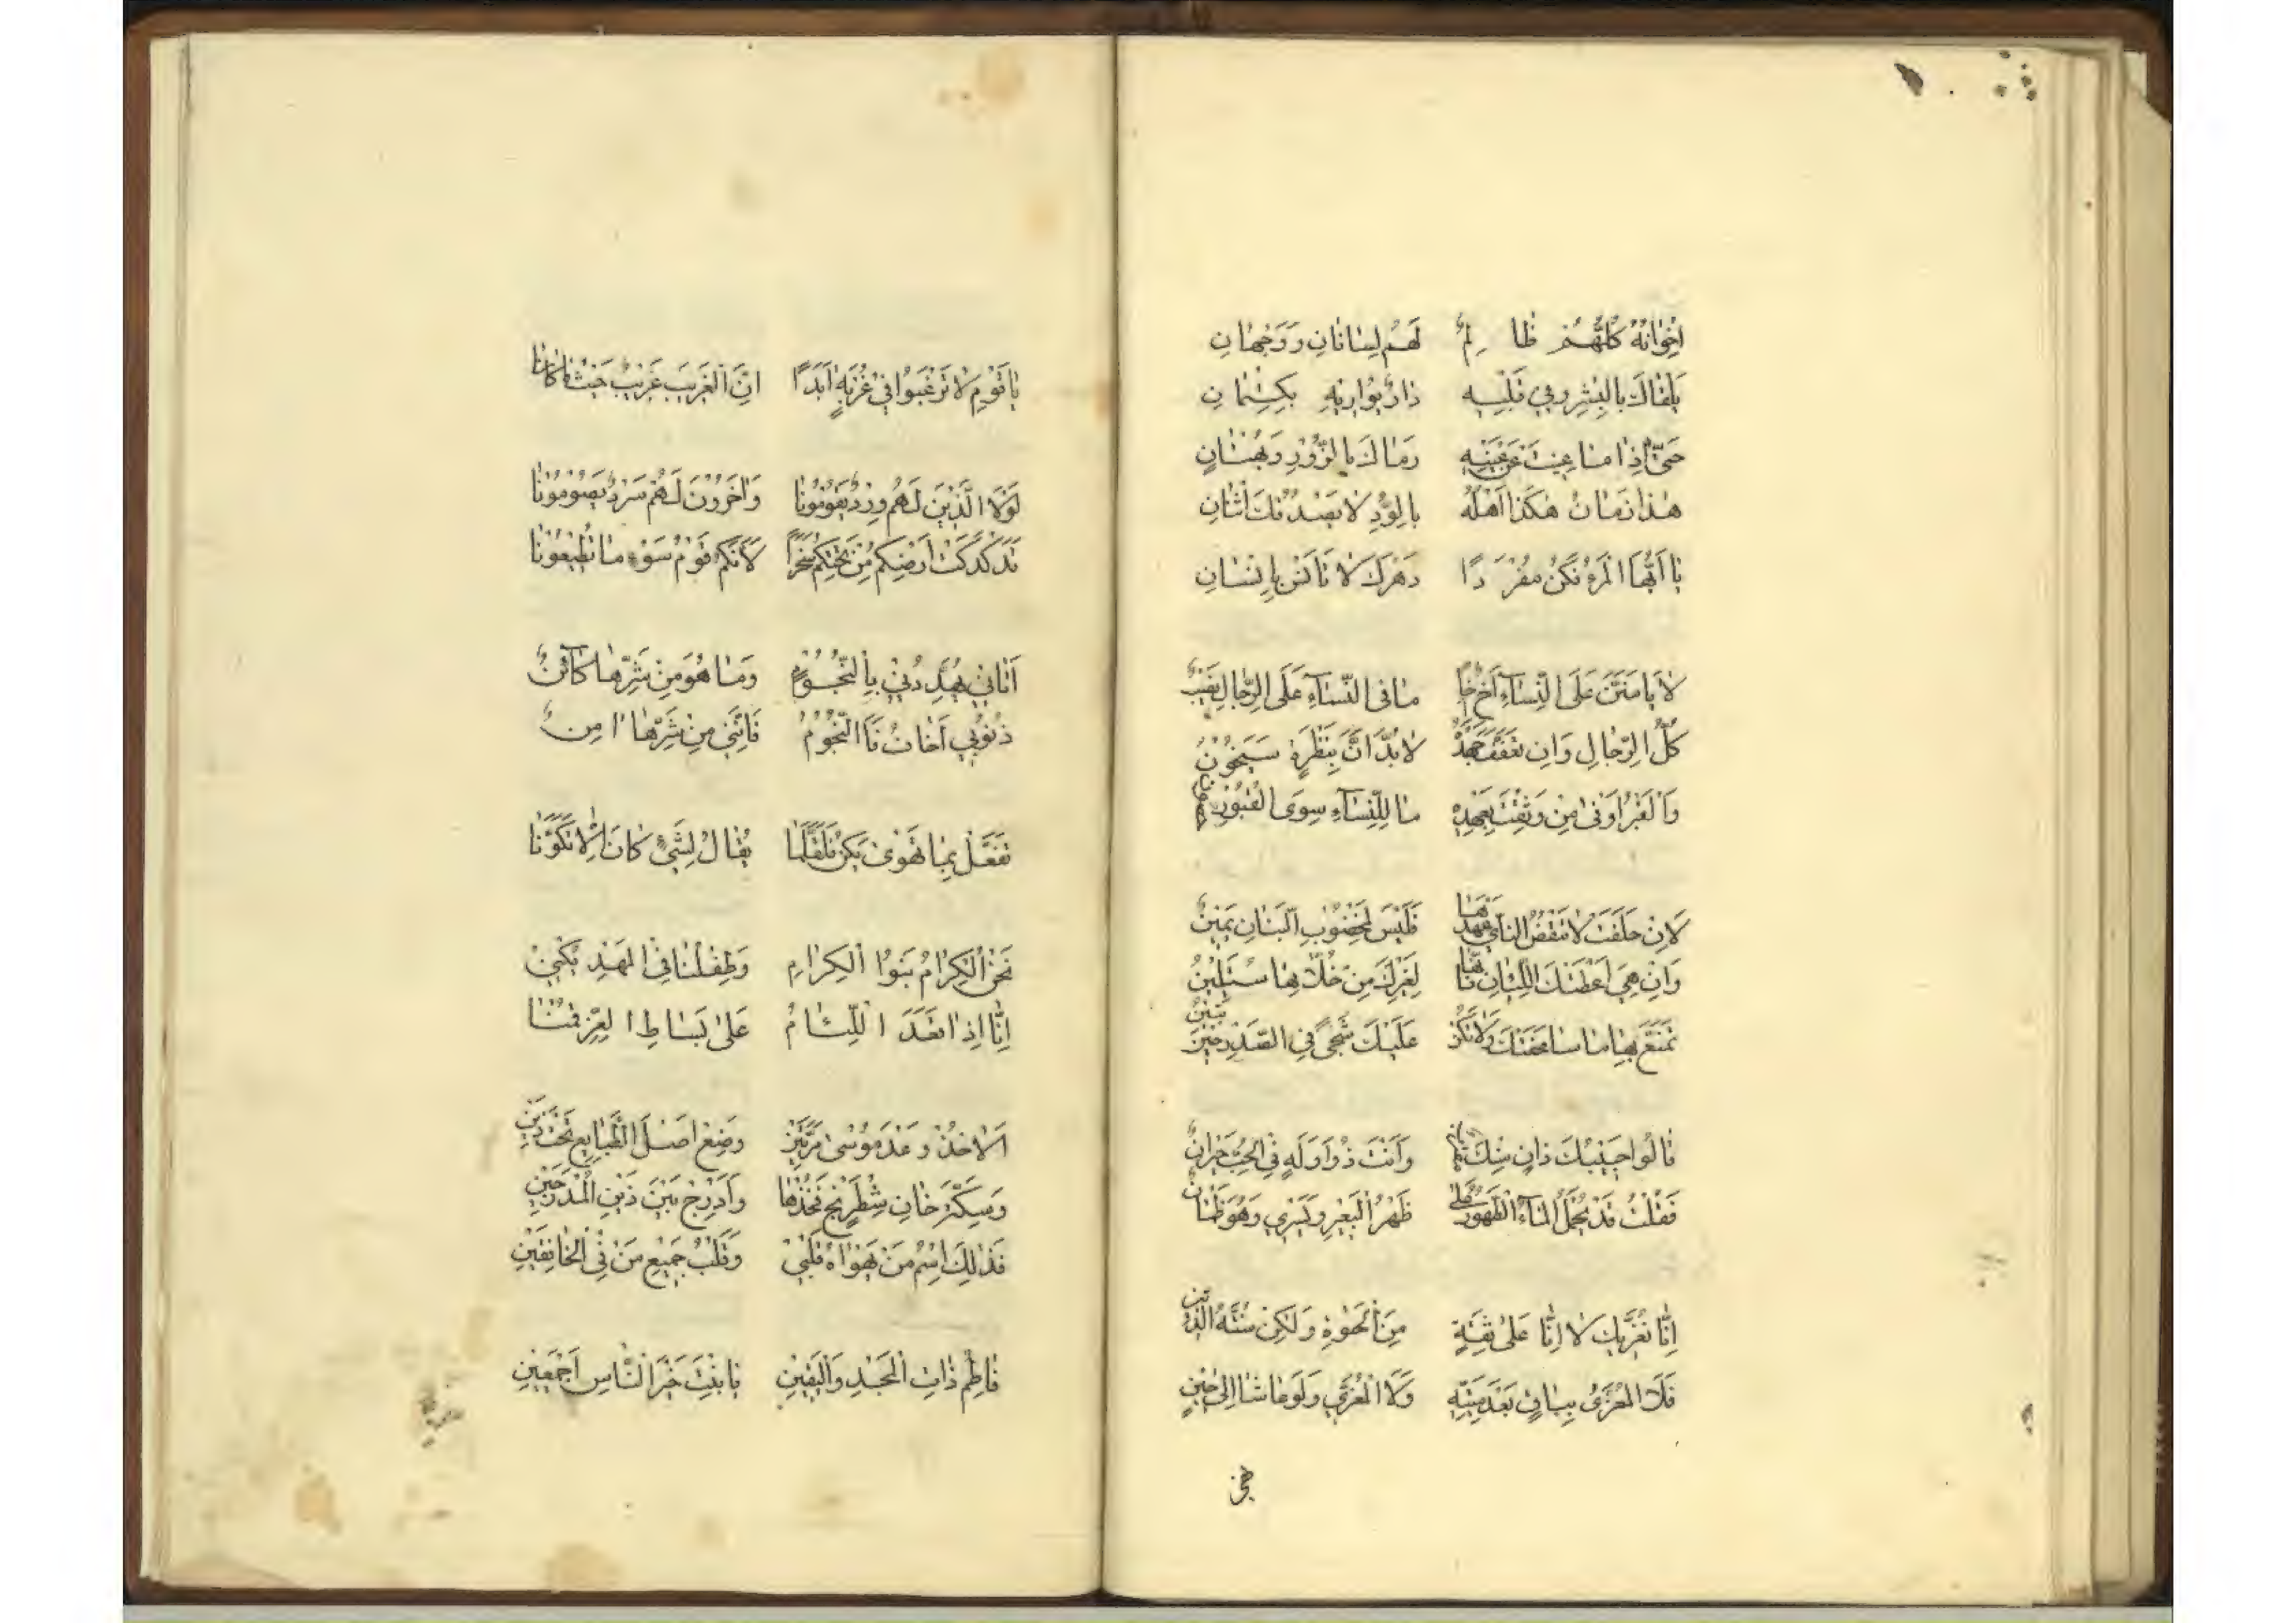 اِخْوَانُهُ كُلُّهُمْ ظَالِمٌ لَهُمْ لِسَانَانِ وَوَجْهَانِ
يَلْقَاكَ بِالْبِشْرِ وَفِي قَلْبِهِ دَاءٌ يُوَارِيهِ بِكِتْمَانِ
حَتّٰى اِذَا مَا غِبْتَ عَنْ عَيْنِهِ رَمَاكَ بِالزُّورِ وَبُهْتَانٍ
هٰذَا زَمَانٌ هٰكَذَا اَهْلُهُ بِالْوُدِّ لَا يَصْدُقُكَ اثْنَانِ
يَا اَيُّهَا الْمَرْءُ فَكُنْ مُفْرَدًا دَهْرَكَ لَا تَأْنَسْ بِاِنْسَانِ
لَا يَأْمَنَنَّ عَلَى النِّسَاءِ اَخٌ اَخًا مَا فِى الرِّجَالِ عَلَى النِّسَاءِ
كُلُّ الرِّجَالِ وَاِنْ تَعَفَّفَ جُهْدَهُ لَا بُدَّ اَنَّ بِنَظْرَةٍ سَيَخُونُ
وَالْقَبْرُ اَوْفٰى مَنْ وَثِقْتَ بِعَهْدِهِ مَا لِلنِّسَاءِ سِوَى الْقُبُورِ
لَاِنْ حَلَفَتْ لَا تَنْقُضُ النَّأْيَ عَهْدَهَا فَلَيْسَ لِمَخْضُوبِ الْبَنَانِ يَمِينٌ
وَاِنْ هِيَ اَعْطَتْكَ اللِّيَانَ فَاِنَّهَا لِغَيْرِكَ مِنْ خُلَّانِهَا سَتَلِينُ
تَمَتَّعْ بِهَا مَا سَاعَفَتْكَ وَلَا تَكُنْ عَلَيْكَ شَجًى فِي الصَّدْرِ حِينَ تَبِينُ
قَالُوا حَبِيبُكَ دَانٍ مِنْكَ وَاَنْتَ ذُو وَلَهٍ فِي الْحُبِّ حَيْرَانٌ
فَقُلْتُ قَدْ يُحْمَلُ الْمَاءُ الطَّهُورُ عَلٰى ظَهْرِ الْبَعِيرِ وَيَسْرِي وَهُوَ ظَمْآنٌ
اِنَّا نُعَزِّيكَ لَا اِنَّا عَلٰى ثِقَةٍ مِنَ الْحَيٰوةِ وَلٰكِنْ سُنَّةُ الدِّينِ
فَلَا الْمُعَزّٰى بِبَاقٍ بَعْدَ مَيِّتِهِ وَلَا الْمُعَزِّي وَلَوْ عَاشَا اِلٰى حِينٍ
يَا قَوْمِ لَا تَرْغَبُوا فِي غُرْبَةٍ اَبَدًا اِنَّ الْغَرِيبَ غَرِيبٌ حَيْثُمَا كَانَا
لَوْلَا الَّذِينَ لَهُمْ وِرْدٌ يَقُومُونَا وَآخَرُونَ لَهُمْ سَرْدٌ يَصُومُونَا
تَدَكْدَكَتْ اَرْضُكُمْ مِنْ تَحْتِكُمْ سَحَرًا لِاَنَّكُمْ قَوْمُ سَوْءٍ مَا تُطِيعُونَا
اَتَانِي يُهَدِّدُنِي بِالنُّجُومِ وَمَا هُوَ مِنْ شَرِّهَا كَائِنٌ
ذُنُوبِي اَخَافُ فَاَمَّا النُّجُومُ فَاِنَّنِي مِنْ شَرِّهَا اٰمِنٌ
تَفَأَّلْ بِمَا تَهْوٰى يَكُنْ فَلَقَلَّمَا يُقَالُ لِشَيْءٍ كَانَ اِلَّا تَكَوَّنَا
نَحْنُ الْكِرَامُ بَنُوا الْكِرَامِ وَطِفْلُنَا فِي الْمَهْدِ يُكْنٰى
اِنَّا اِذَا قَعَدَ اللِّئَامُ عَلٰى بَسَاطِ الْعِزِّ قُمْنَا
اَلَا خُذْ وَعْدَ مُوسٰى مَرَّتَيْنِ وَضَعْ اَصْلَ الطَّبَايِعِ تَحْتَ ذَيْنِ
وَسِكَّةَ خَانِ شِطْرَنْجٍ فَخُذْهَا وَاَدْرِجْ بَيْنَ ذَيْنِ الْمُدْرَجَيْنِ
فَذٰلِكَ اسْمُ مَنْ يَهْوَاهُ قَلْبِي وَقَلْبُ جَمِيعِ مَنْ فِي الْخَافِقَيْنِ
فَاطِمُ ذَاتَ الْمَجْدِ وَالْيَقِينِ يَا بِنْتَ خَيْرِ النَّاسِ اَجْمَعِينِ